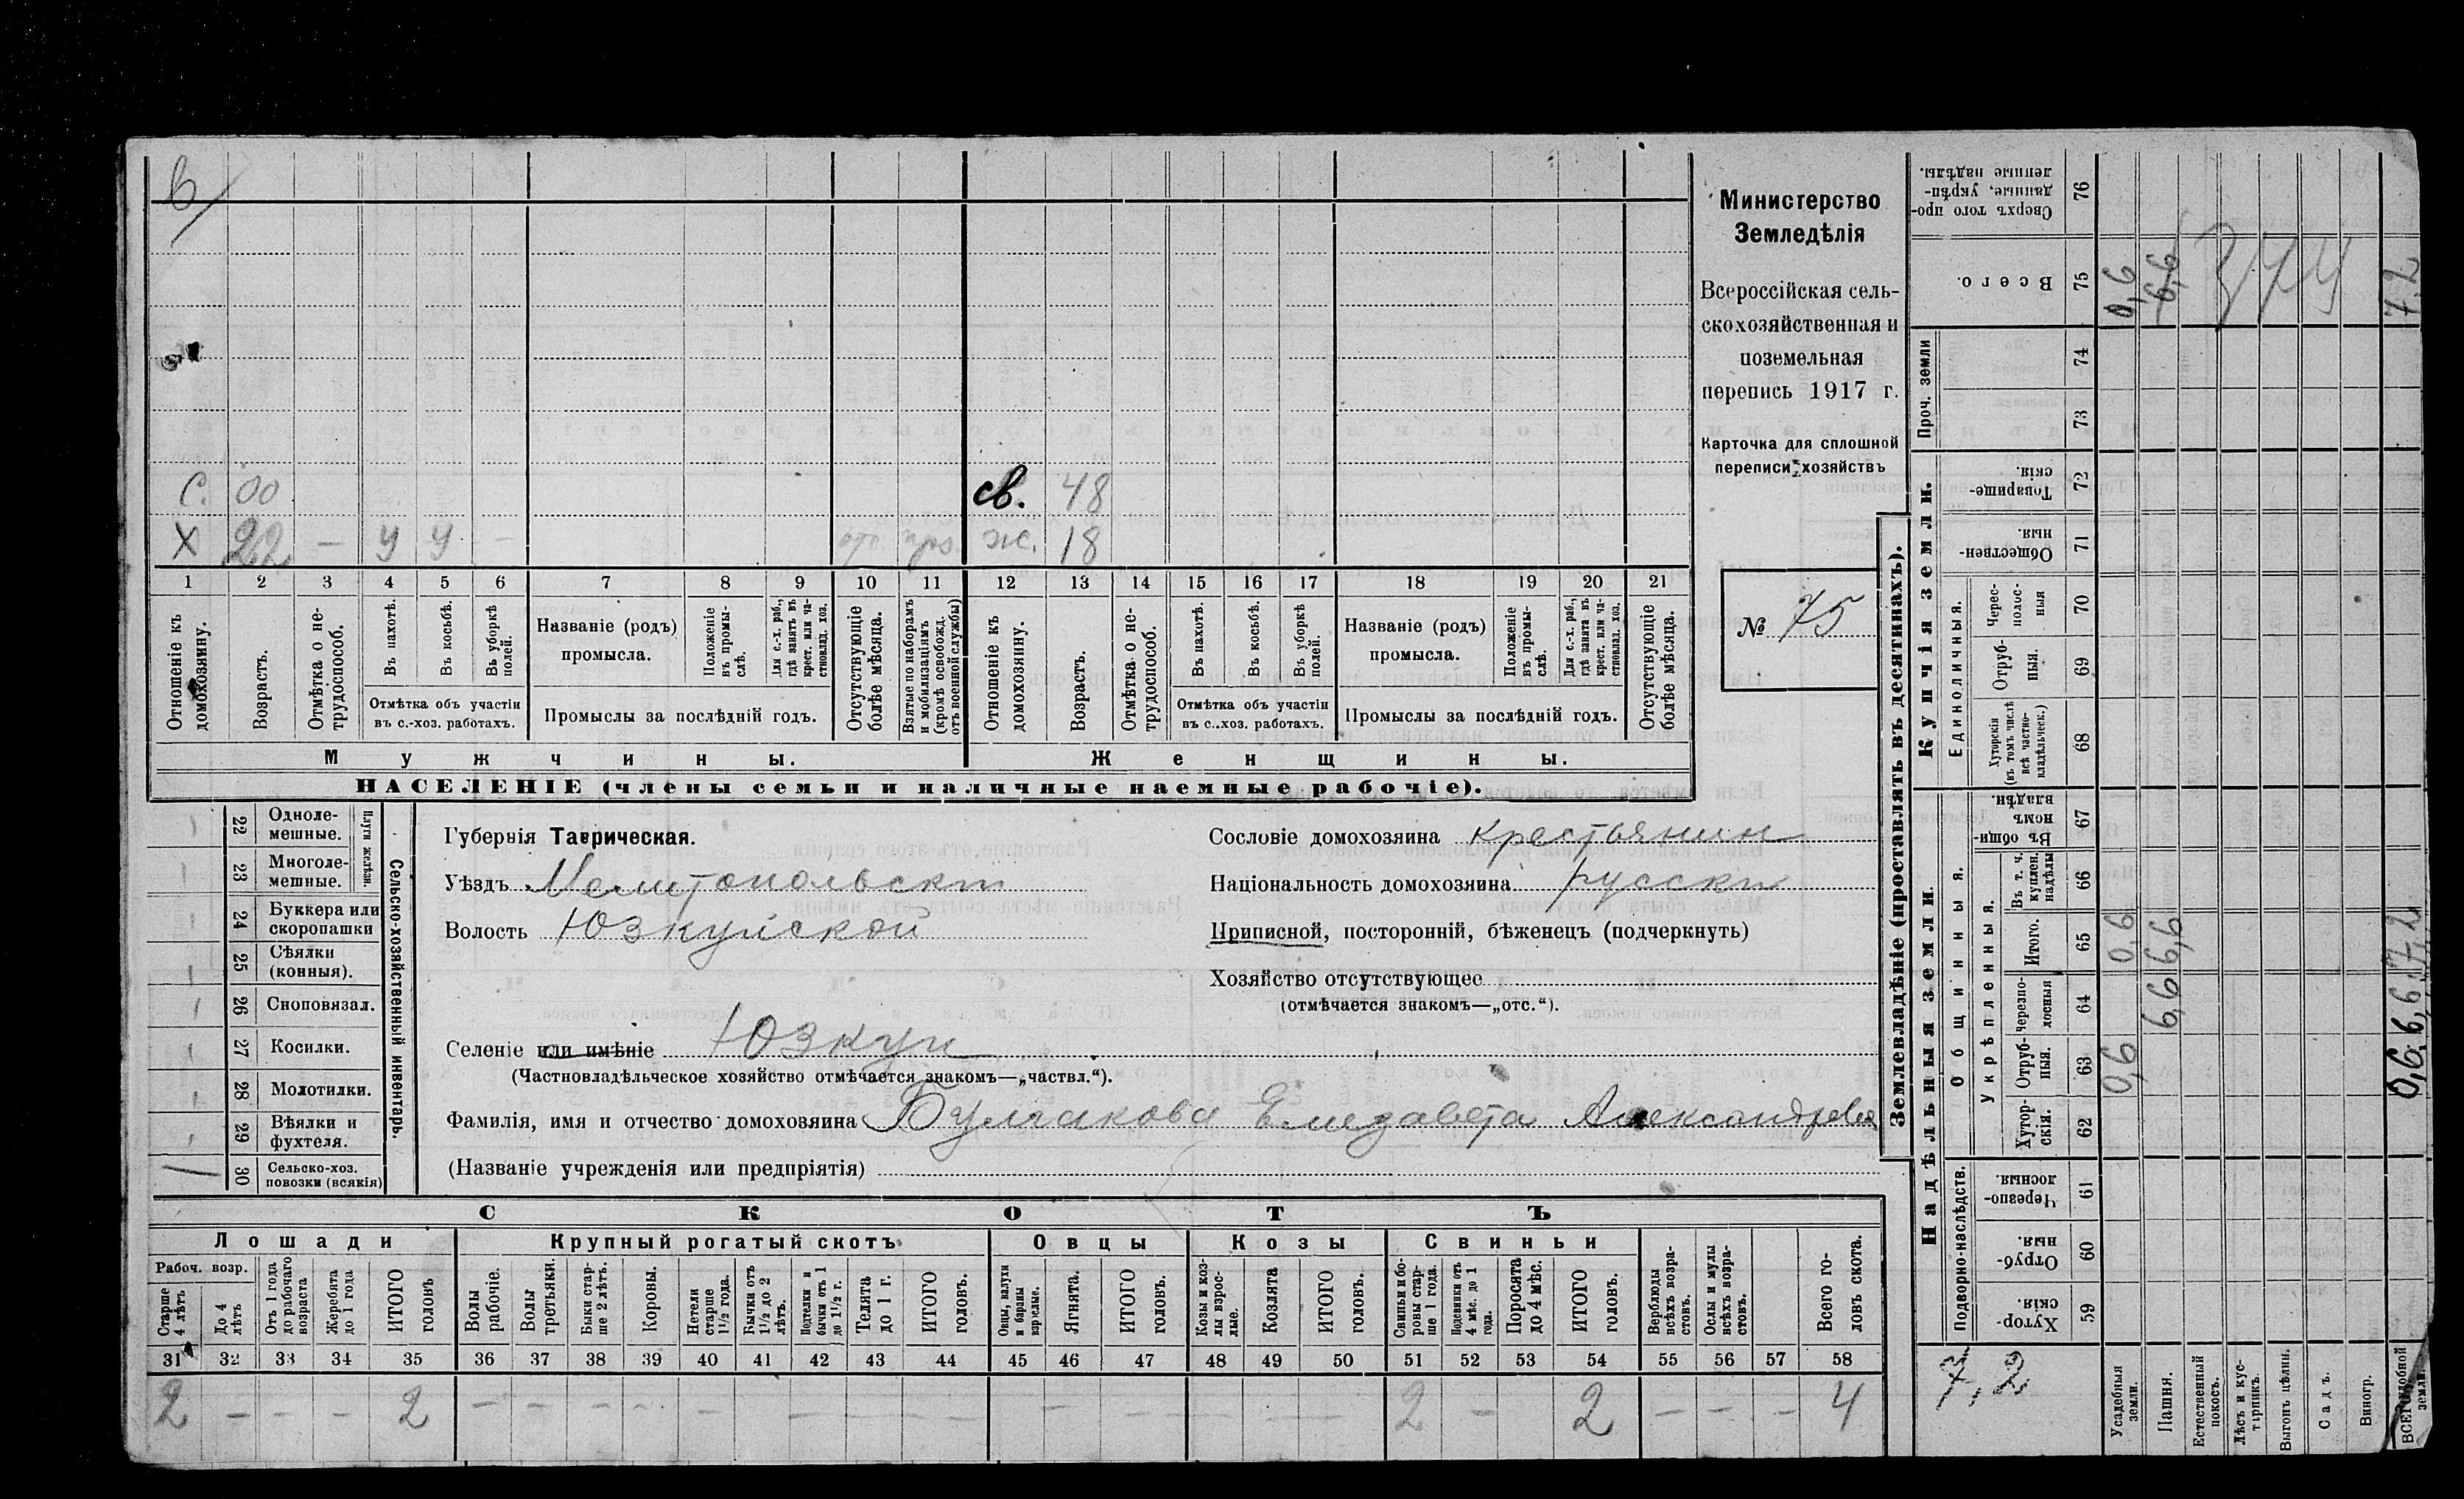 В
Министерство
Земледѣлія
Всероссійская сель-
скохозяйственная и
поземельная
перепись 1917 г.
Карточка для сплошной
переписи хозяйствъ
№ 75
С. 00 св. 48
Х 22 — У У — отс. ж. 18
1 2 3 4 5 6 7 8 9 10 11 12 13 14 15 16 17 18 19 20 21
Отношеніе къ домохозяину.
Возрастъ.
Отмѣтка о не-трудоспособ.
Въ пахотѣ.
Въ косьбѣ.
Въ уборкѣ полей.
Отмѣтка объ участіи
въ с.-хоз. работахъ.
Названіе (родъ)
промысла.
Положеніе въ промы-слѣ.
Для с.-х. раб., гдѣ занятъ въ крест. или ча-стновлад. хоз.
Промыслы за послѣдній годъ.
Отсутствующіе болѣе мѣсяца.
Взятые по наборамъ и мобилизаціямъ (кромѣ освобожд. отъ военной службы)
Отношеніе къ домохозяину.
Возрастъ.
Отмѣтка о не-трудоспособ.
Въ пахотѣ.
Въ косьбѣ.
Въ уборкѣ полей.
Отмѣтка объ участіи
въ с.-хоз. работахъ.
Названіе (родъ)
промысла.
Положеніе въ промы-слѣ.
Для с.-х. раб., гдѣ занята въ крест. или ча-стновлад. хоз.
Промыслы за послѣдній годъ.
Отсутствующіе болѣе мѣсяца.
Мужчины. Женщины.
НАСЕЛЕНІЕ (члены семьи и наличные наемные рабочіе).
22 Одноле-мешные.
23 Многоле-мешные.
Плуги желѣзн.
24 Буккера или скоропашки
25 Сѣялки (конныя).
26 Сноповязал.
27 Косилки.
28 Молотилки.
29 Вѣялки и фухтеля.
30 Сельско-хоз. повозки (всякія)
Сельско-хозяйственный инвентарь.
Губернія Таврическая.
Уѣздъ Мелитопольскій
Волость Юзкуйской
Селеніе или имѣніе Юзкуи
(Частновладѣльческое хозяйство отмѣчается знакомъ—„частвл.“).
Фамилія, имя и отчество домохозяина Булгакова Елизавета Александров
(Названіе учрежденія или предпріятія)
Сословіе домохозяина крестьянин
Національность домохозяина русски
Приписной, посторонній, бѣженецъ (подчеркнуть)
Хозяйство отсутствующее
(отмѣчается знакомъ—„отс.“).
СКОТЪ
Лошади Крупный рогатый скотъ Овцы Козы Свиньи
Рабоч. возр.
Старше 4 лѣтъ
До 4 лѣтъ
Отъ 1 года до рабочаго возраста
Жеребята до 1 года
ИТОГО головъ
Волы рабочіе.
Волы третьяки.
Быки стар-ше 2 лѣтъ.
Коровы.
Нетели старше 1½ года.
Бычки отъ 1½ до 2 лѣтъ.
Подтелки и бычки отъ 1 до 1½ г.
Телята до 1 г.
ИТОГО головъ.
Овцы, валухи и бараны взрослые.
Ягнята.
ИТОГО головъ.
Козы и коз-лы взрос-лые.
Козлята
ИТОГО головъ.
Свиньи и бо-ровы стар-ше 1 года.
Подсвинки отъ 4 мѣс. до 1 года.
Поросята до 4 мѣс.
ИТОГО головъ.
Верблюды всѣхъ возра-стовъ.
Ослы и мулы всѣхъ возра-стовъ.
Всего го-ловъ скота.
31 32 33 34 35 36 37 38 39 40 41 42 43 44 45 46 47 48 49 50 51 52 53 54 55 56 57 58
2 — — — 2 — — — — — — — — — — — — 2 — 2 — — — 4
Землевладѣніе (проставлять въ десятинахъ).
Надѣльныя земли. Купчія земли.
Подворно-наслѣдств.
Общинныя.
Укрѣпленныя.
Единоличныя.
Проч. земли
Хутор-скія. 59
Отруб-ныя. 60
Черезпо-лосныя. 61
Хутор-скія. 62
Отруб-ныя. 63
Черезпо-лосныя 64
Итого. 65
Въ т. ч. куплен. надѣлы 66
Въ общи-номъ владѣн. 67
Хуторскія (въ томъ числѣ всѣ частно-владѣльческ.) 68
Отруб-ныя. 69
Черес-полос-ныя 70
Обществен-ныя 71
Товарище-скія. 72
73
74
Всего. 75
Сверхъ того про-данные, укрѣп-ленные надѣлы. 76
7,2
Усадебныя земли. 0,6 0,6 0,6
Пашня. 6,6 6,6 6,6
Естественный покосъ.
Лѣсъ и кус-тарникъ.
Выгонъ цѣлин.
Садъ.
Виногр.
ВСЕГО удобной земли. 0,6 6,6 7,2 7,2
374